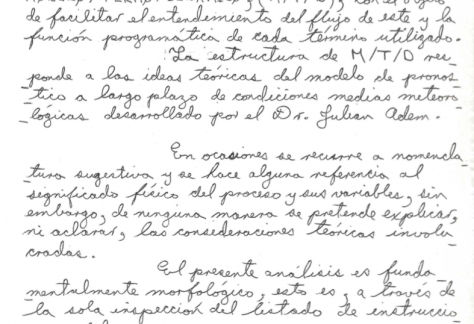 de facilitar el entendimiento del flujo de este y la
función programática de cada término utilizado.
La estructura de M/T/D res_
_ponde a las ideas teóricas del modelo de pronos_
_tico a largo plazo de condiciones medias meteoro_
_lógicas desarrollado por el Dr. Julian Adem.
En ocasiones se recurre a nomencla_
_tura sugestiva y se hace alguna referencia al
significado físico del proceso y sus variables, sin
embargo, de ninguna manera se pretende explicar,
ni aclarar, las consideraciones teóricas involu_
cradas.
El presente análisis es funda_
_mentalmente morfológico, esto es, a través de
la sola inspección del listado de instruccio_